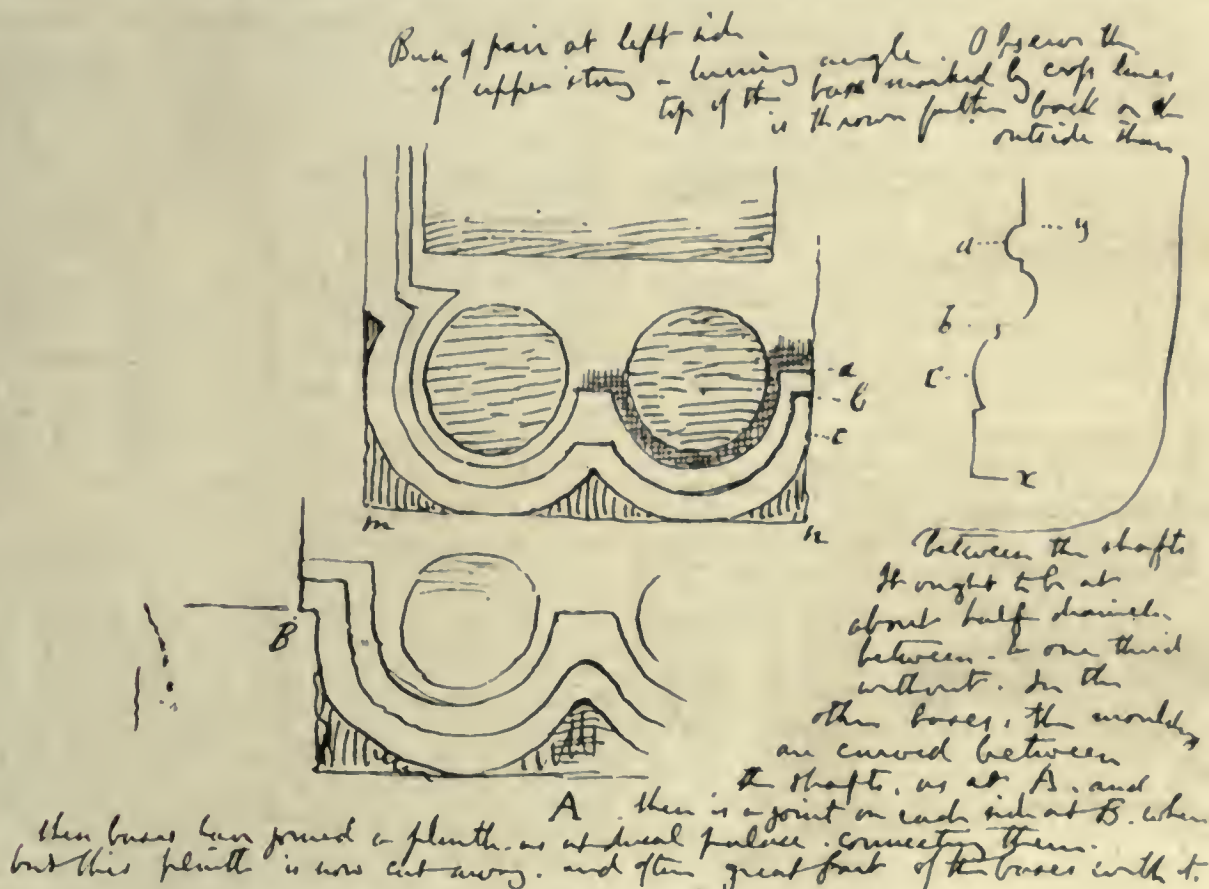 Base of pair at left side
of upper story - turning angle. Observe the
top of the base marked by cross lines
is thrown further back on the
outside than
a
y
b
c
x
a
b
c
m
n
B
between the shafts
It ought to be at
about half diameter
between - & one third
without. In the
other bases, the mouldings
are curved between
the shafts, as at A. and
A
there is a joint on each side at B. where
these bases have joined a plinth as at ducal palace connecting them.
but this plinth is now cut away. and often great part of the bases with it.